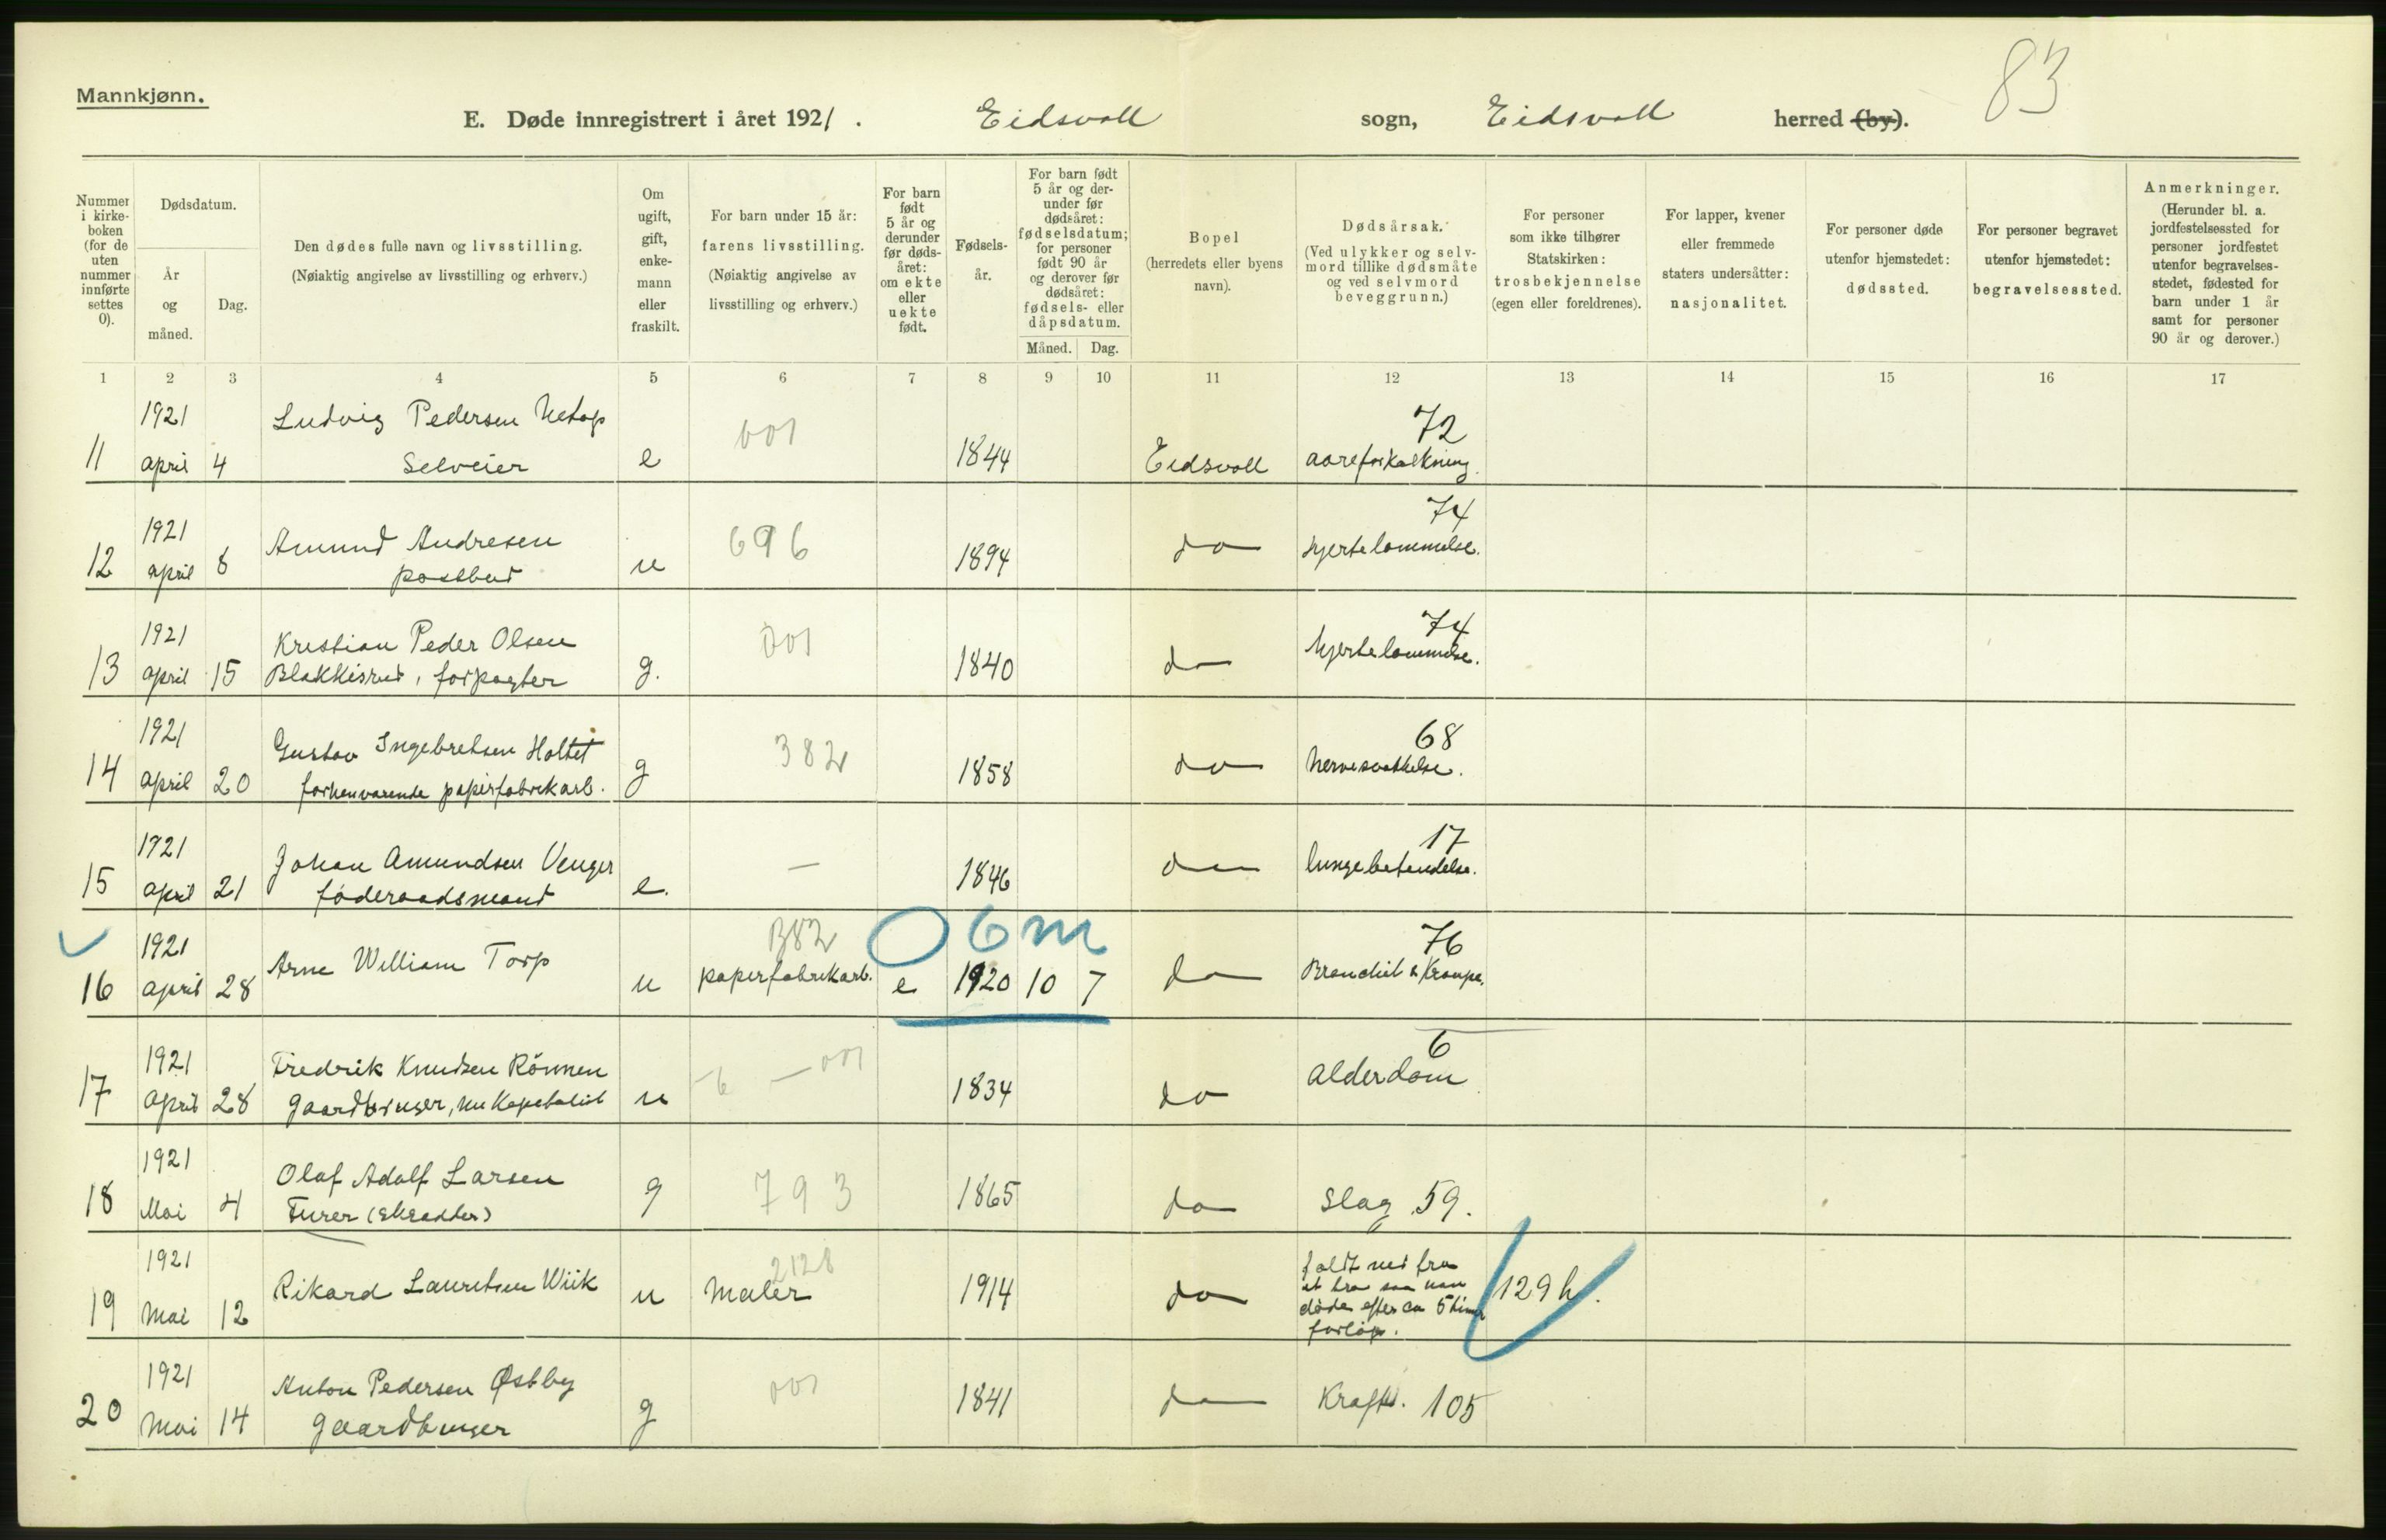 83
Mannkjønn.
E. Døde innregistrert i året 1921. Eidsvoll sogn, Eidsvoll herred (by).
Nummer i kirke-boken (for de uten nummer innførte settes 0).
Dødsdatum.
År og måned.
Dag.
Den dødes fulle navn og livsstilling.
(Nøiaktig angivelse av livsstilling og erhverv.)
Om ugift, gift, enke-mann eller fraskilt.
For barn under 15 år: farens livsstilling. (Nøiaktig angivelse av livsstilling og erhverv.)
For barn født 5 år og derunder før døds-året: om ekte eller uekte født.
Fødsels-år.
For barn født 5 år og der-under før dødsåret: fødselsdatum; for personer født 90 år og derover før dødsåret: fødsels- eller dåpsdatum.
Måned. Dag.
Bopel (herredets eller byens navn).
Dødsårsak. (Ved ulykker og selv-mord tillike dødsmåte og ved selvmord beveggrunn.)
For personer som ikke tilhører Statskirken: trosbekjennelse (egen eller foreldrenes).
For lapper, kvener eller fremmede staters undersåtter: nasjonalitet.
For personer døde utenfor hjemstedet: dødssted.
For personer begravet utenfor hjemstedet: begravelsessted.
Anmerkninger. (Herunder bl. a. jordfestelsessted for personer jordfestet utenfor begravelses-stedet, fødested for barn under 1 år samt for personer 90 år og derover.)
1 2 3 4 5 6 7 8 9 10 11 12 13 14 15 16 17
1921 Ludvig Pedersen 001 72
11 april 4 Selveier e 1844 Eidsvoll aareforkalkning.
1921 Amund Andresen 696 74
12 april 8 postbud u 1894 do hjertelammelse.
1921 Kristian Peder Olsen 001 74
13 april 15 Blakkisrud, forpagter g. 1840 do hjertelammelse.
1921 Gustav Ingebretsen Holtet 382 68
14 april 20 forhenværende papirfabrikarb. g 1858 do nervesvækkelse.
1921 Johan Amundsen Venger — 17
15 april 21 føderaadsmand e. 1846 do lungebetendelse.
1921 Arne William Torp 382 0 6 m 76
16 april 28 u papirfabrikarb. e 1920 10 7 do Bronchit & Krampe.
1921 Fredrik Knudsen Rønnen 001 6
17 april 28 gaardbruger, nu Kapitalist u — 1834 do Alderdom
1921 Olaf Adolf Larsen 793
18 Mai 4 Furer (skrædder) g 1865 do Slag 59.
1921 Rikard Lauritsen Wiik 2128 faldt ned fra
19 Mai 12 u Maler 1914 do et træ saa han døde efter ca 5 timer forløp. 129 h.
1921 Anton Pedersen Østby 001
20 Mai 14 gaardbruger g 1841 do Kræft. 105